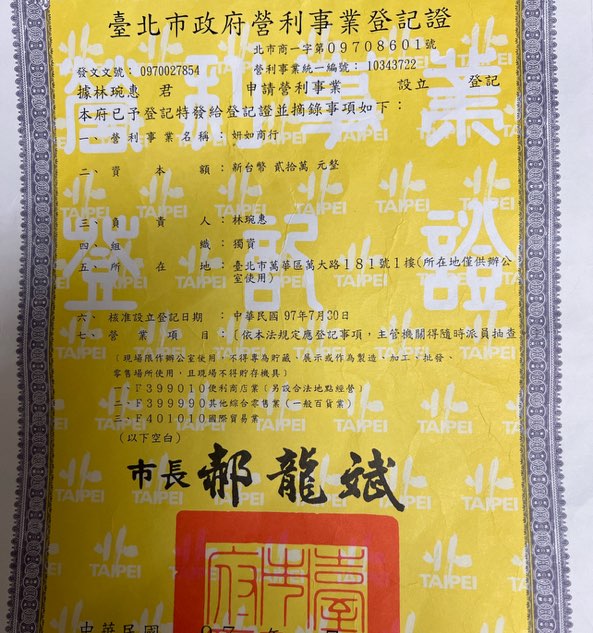 臺北市政府營利事業登記證
北市商一字第09708601號
發文文號：0970027854 營利事業統一編號：10343722
據林琬惠 君 申請營利事業 設立 登記
本府已予登記特發給登記證並摘錄事項如下：
一、營利事業名稱：妍如商行
二、資本額：新台幣 貳拾萬 元整
三、負責人：林琬惠
四、組織：獨資
五、所在地：臺北市萬華區萬大路181號1樓(所在地僅供辦公
室使用)
六、核准設立登記日期：中華民國 97年7月30日
七、營業項目：〔依本法規定應登記事項，主管機關得隨時派員抽查
〔現場限作辦公室使用，不得專為貯藏、展示或作為製造、加工、批發、
零售場所使用，且現場不得貯存機具〕
一、F399010便利商店業(另設合法地點經營)
二、F399990其他綜合零售業(一般百貨業)
三、F401010國際貿易業
(以下空白)
市長 郝龍斌
臺北市政府
中華民國 97年
營利事業
登記證
北 TAIPEI